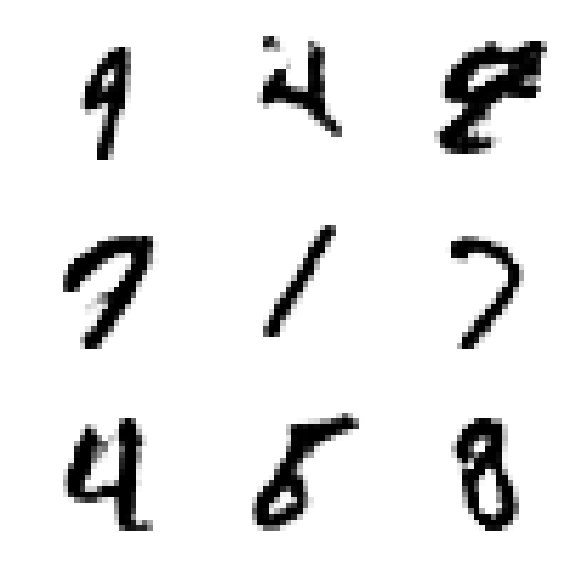 9 4 8
7 1 7
4 5 8